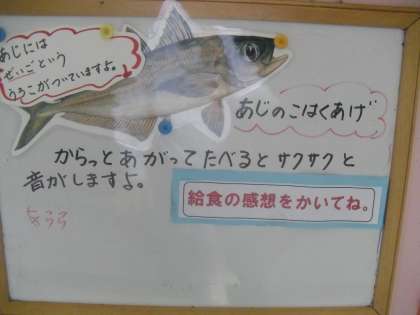 あじには
ぜいごという
うろこがついていますよ。
あじのこはくあげ
からっとあがってたべるとサクサクと
音がしますよ。
給食の感想をかいてね。